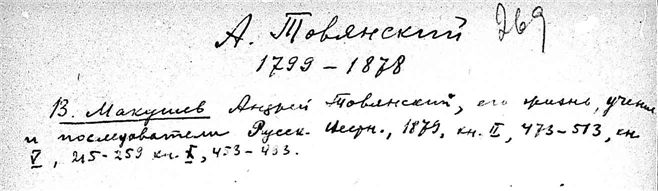 А. Товянский 269
1799 – 1878
В. Макушев Андрей Товянский, его жизнь, учение
и последователи Русск. Вестн., 1879, кн. II, 473–513, кн
V, 215–259 кн. X, 453–493.